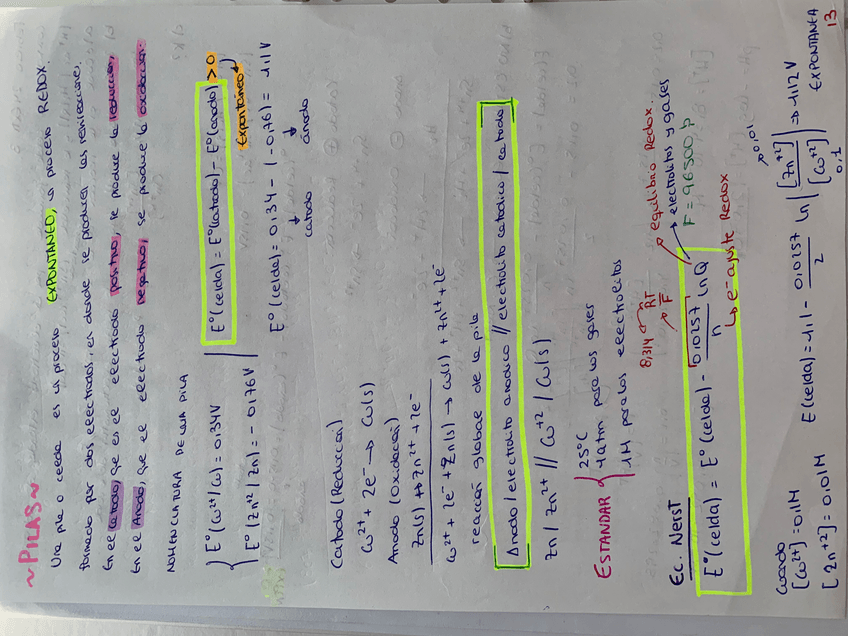 ~PILAS~
Una pila o celda es un proceso EXPONTANEO, un proceso REDOX
formado por dos electrodos, es donde se producen las semireacciones.
En el catodo, que es el electrodo positivo, se produce la reducción.
En el Anodo, que es el electrodo negativo, se produce la oxidación.
NOMENCLATURA DE UNA PILA
E°(Cu²⁺/Cu) = 0,34V
E°(Zn⁺²/Zn) = -0,76V
E°(celda) = E°(catodo) - E°(anodo) > 0
Expontáneo
E°(celda) = 0,34 - (-0,76) = 1,1V
catodo ánodo
Catodo (Reducción)
Cu²⁺ + 2e⁻ → Cu(s)
Anodo (Oxidación)
Zn(s) → Zn²⁺ + 2e⁻
Cu²⁺ + 2e⁻ + Zn(s) → Cu(s) + Zn²⁺ + 2e⁻
reacción global de la pila
Anodo / electrolito anodico // electrolito catodico / catodo
Zn / Zn²⁺ // Cu⁺² / Cu(s)
ESTANDAR
25°C
1atm para los gases
1M para los electrolitos
Ec. Nerst
8,314 RT/F
equilibrio Redox.
electrolitos y gases
F = 96500
E°(celda) = E°(celda) - 0,0257/n ln Q
e⁻ ajuste Redox
Cuando
[Cu²⁺] = 0,1M
[Zn⁺²] = 0,01M
E(celda) = 1,1 - 0,0257/2 ln [Zn⁺²]/[Cu⁺²] → 1,12V
0,01
0,1
EXPONTANEA
13